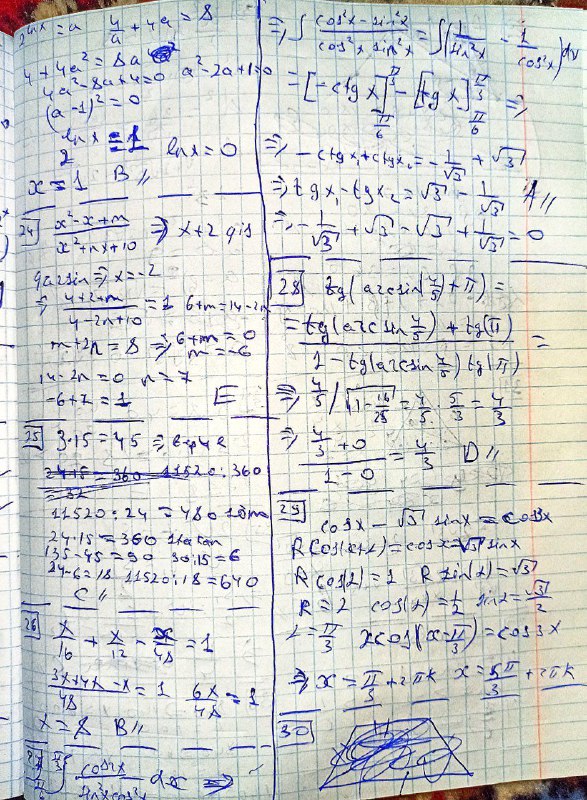 2^lnx = a   4/a + 4a = 8
4 + 4a² = 8a
4a² - 8a + 4 = 0   a² - 2a + 1 = 0
(a - 1)² = 0
2^lnx = 1   lnx = 0
x = 1   B //
24   (x² - x + m)/(x² + nx + 10) ⇒ x + 2 qis
qarsin ⇒ x = -2
⇒ (4 + 2 + m)/(4 - 2n + 10) = 1   6 + m = 14 - 2n
m + 2n = 8 ⇒ 6 + m = 0
m = -6
14 - 2n = 0   n = 7
-6 + 7 = 1   E
25   3·15 = 45 ⇒
24·15 = 360   11520 : 360
= 32
11520 : 24 = 480
24·15 = 360
135 - 45 = 90   90 : 15 = 6
24 - 6 = 18   11520 : 18 = 640
C //
26   x/16 + x/12 - x/48 = 1
(3x + 4x - x)/48 = 1   6x/48 = 1
x = 8   B //
27   ∫ π/3 π/6 cos2x/(sin²x cos²x) dx ⇒
⇒ ∫ (cos²x - sin²x)/(cos²x sin²x) = ∫(1/sin²x - 1/cos²x) dx
= [-ctgx] π/3 π/6 - [tgx] π/3 π/6 ⇒
⇒ -ctgx₁ + ctgx₂ = -1/√3 + √3
⇒ tgx₁ - tgx₂ = √3 - 1/√3   A //
⇒ -1/√3 + √3 - √3 + 1/√3 = 0
28   tg(arcsin(4/5) + π) =
= (tg(arcsin 4/5) + tg(π))/(1 - tg(arcsin 4/5) tg(π)) =
⇒ 4/5 / √(1 - 16/25) = 4/5 · 5/3 = 4/3
⇒ (4/3 + 0)/(1 - 0) = 4/3   D //
29   cosx - √3 sinx = cos3x
R cos(x+α) = cosx - √3 sinx
R cos(α) = 1   R sin(α) = √3
R = 2   cos(α) = 1/2   sinα = √3/2
α = π/3   2cos(x - π/3) = cos3x
⇒ x = π/3 + 2πk   x = 5π/3 + 2πk
30